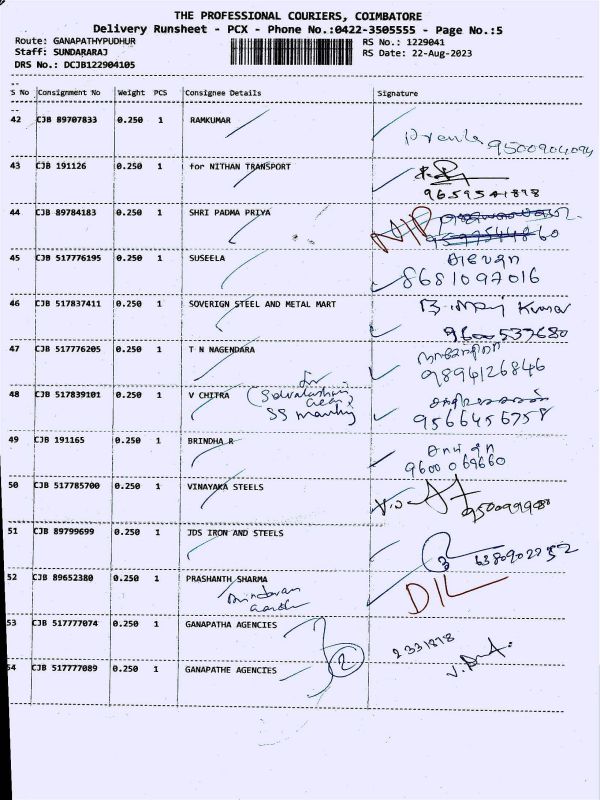 THE PROFESSIONAL COURIERS, COIMBATORE
Delivery Runsheet - PCX - Phone No.:0422-3505555 - Page No.:5
Route: GANAPATHYPUDHUR RS No.: 1229041
Staff: SUNDARARAJ RS Date: 22-Aug-2023
DRS No.: DCJB122904105
S No Consignment No Weight PCS Consignee Details Signature
42 CJB 89707833 0.250 1 RAMKUMAR
9500904094
43 CJB 191126 0.250 1 for NITHAN TRANSPORT
9659541878
44 CJB 89784183 0.250 1 SHRI PADMA PRIYA
45 CJB 517776195 0.250 1 SUSEELA
8681097016
46 CJB 517837411 0.250 1 SOVERIGN STEEL AND METAL MART
Kumar
9600537680
47 CJB 517776205 0.250 1 T N NAGENDARA
9894126846
48 CJB 517839101 0.250 1 V CHITRA
9566456758
49 CJB 191165 0.250 1 BRINDHA R
9600069660
50 CJB 517785700 0.250 1 VINAYAKA STEELS
51 CJB 89799699 0.250 1 JDS IRON AND STEELS
6380902252
52 CJB 89652380 0.250 1 PRASHANTH SHARMA
DIL
53 CJB 517777074 0.250 1 GANAPATHA AGENCIES
2331878
54 CJB 517777089 0.250 1 GANAPATHE AGENCIES
2